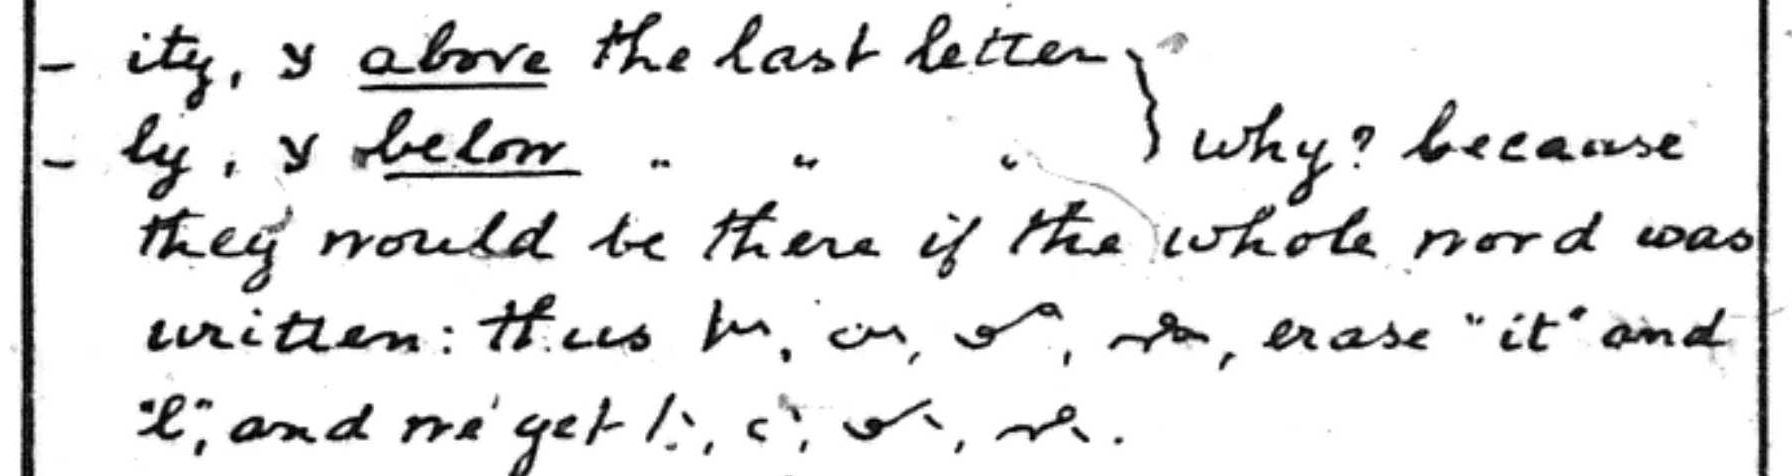 - ity, y above the last letter
- ly, y below " " " } why? because
they would be there if the whole word was
written: thus , , , , erase "it" and
"l", and we get , , , .